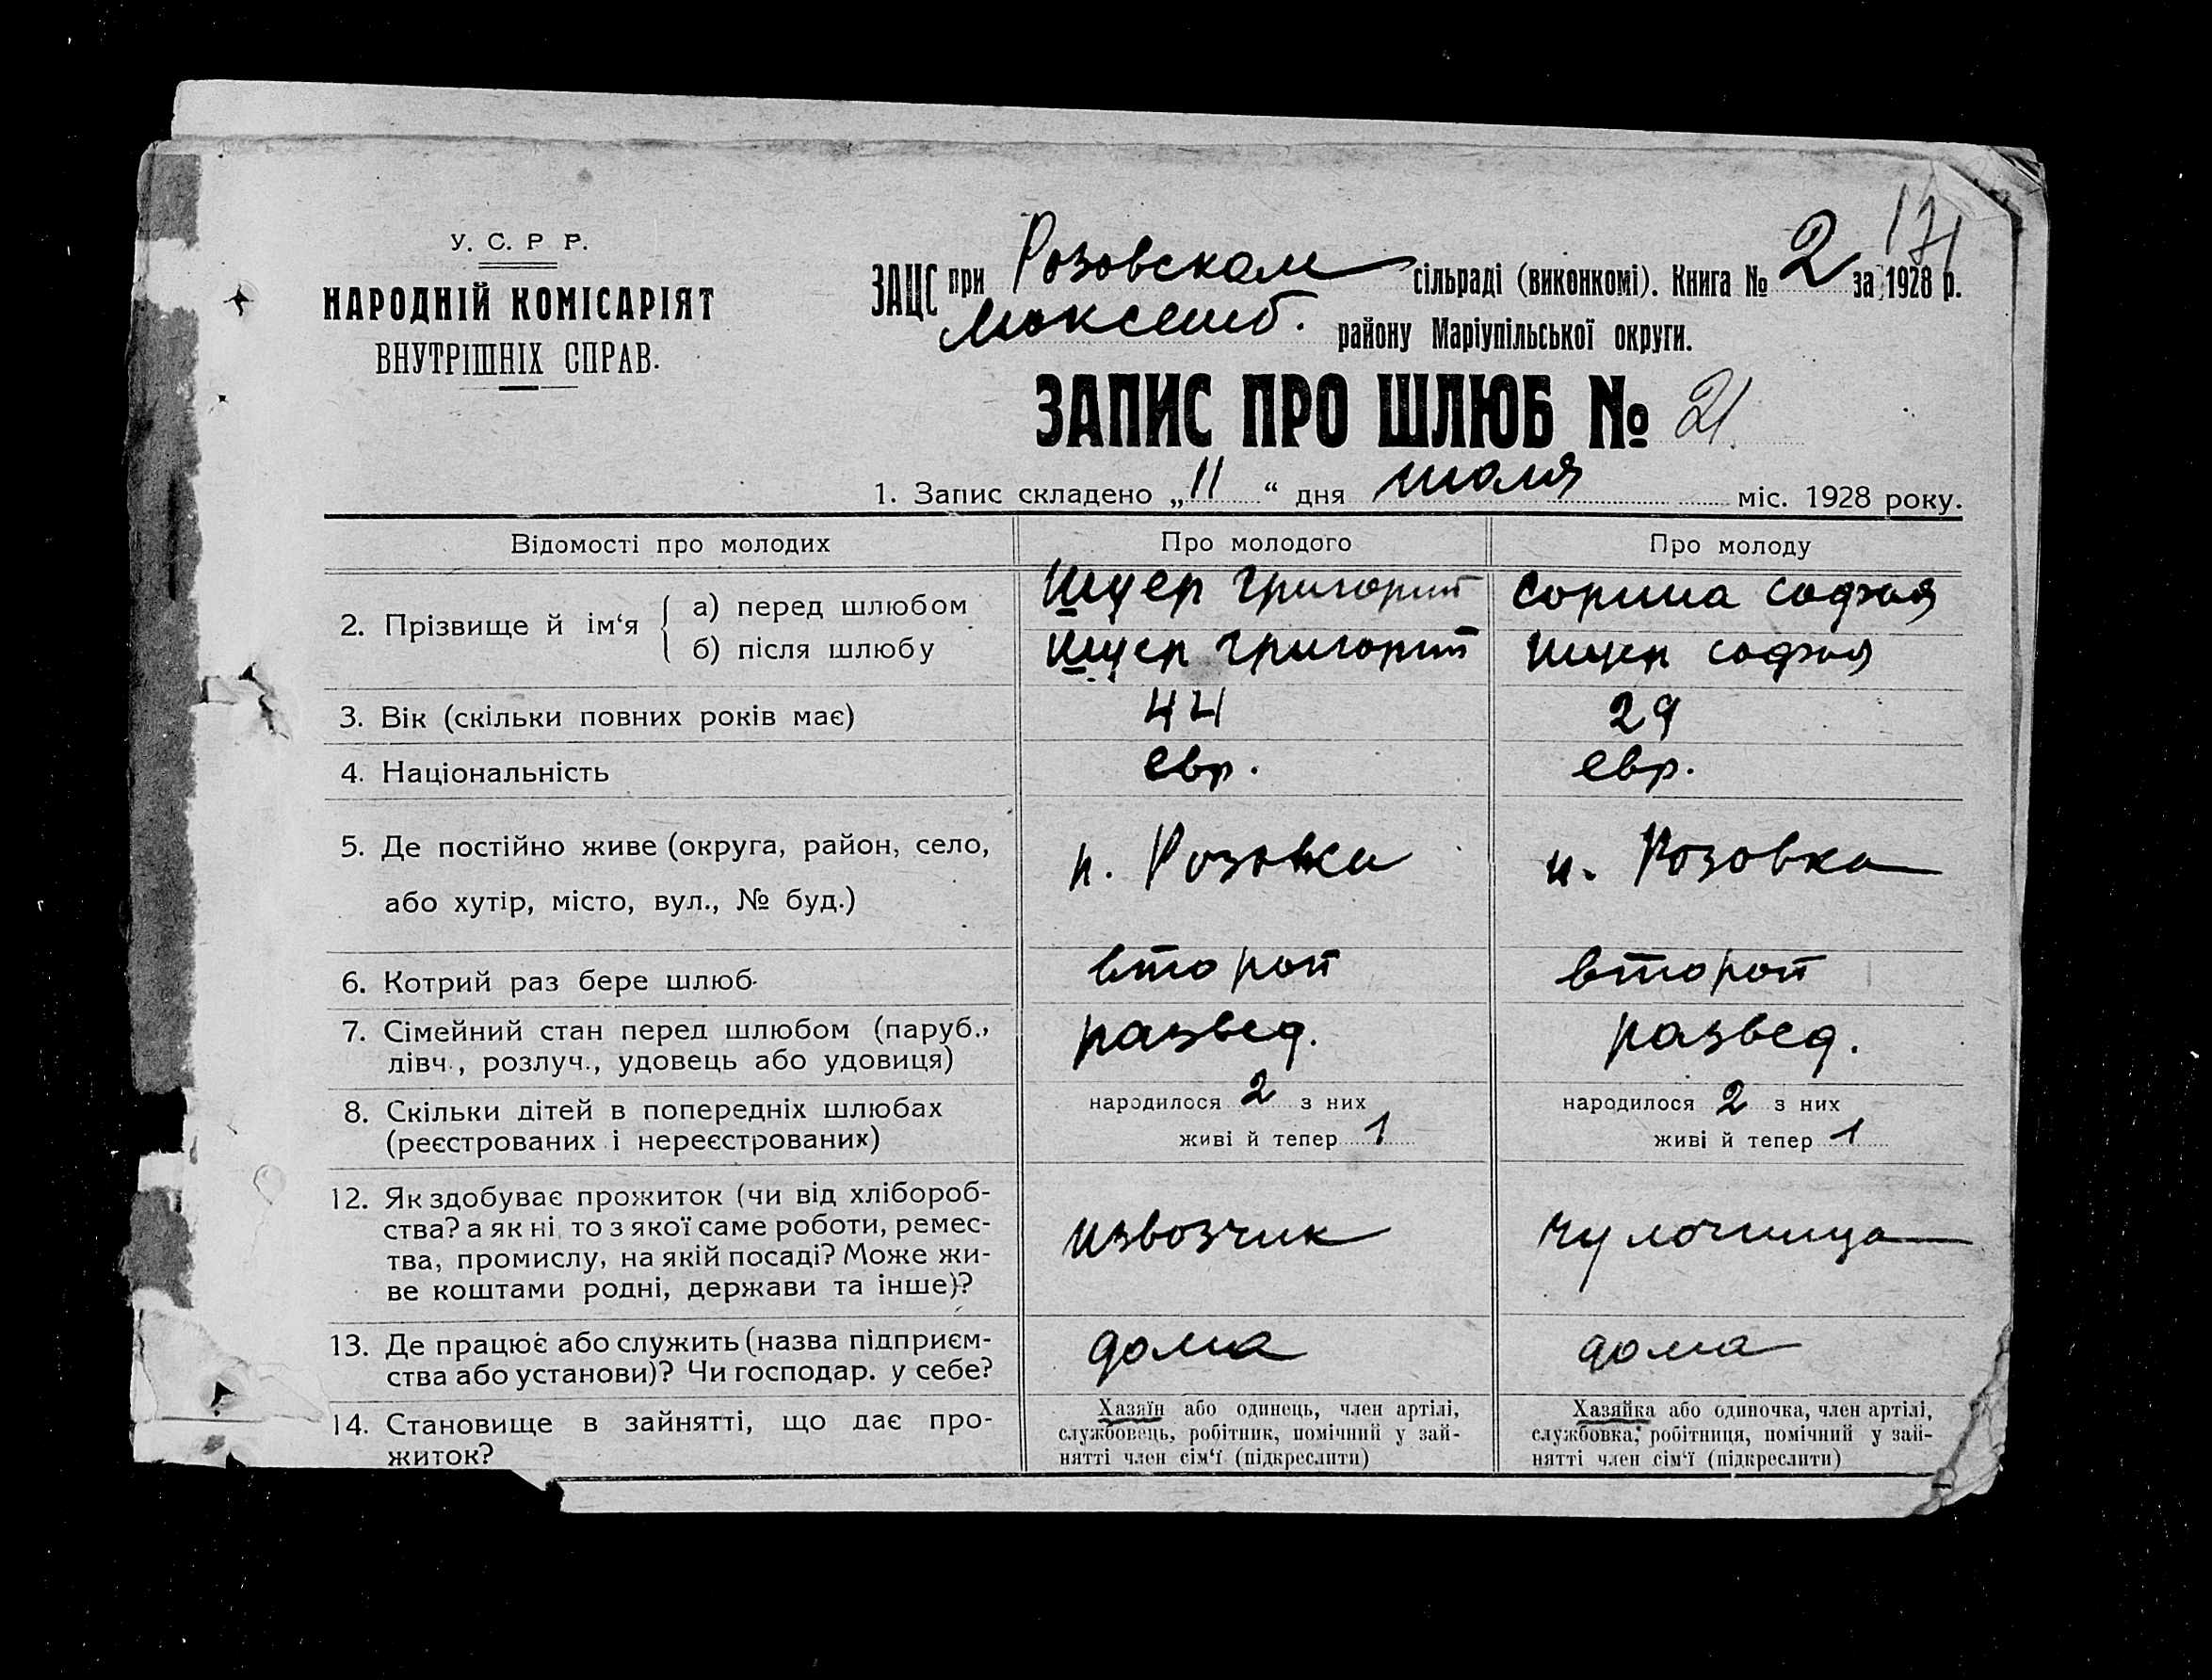 171
У. С. Р Р.
НАРОДНІЙ КОМІСАРІЯТ
ВНУТРІШНІХ СПРАВ.
ЗАЦС при Розовском сільраді (виконкомі). Книга № 2 за 1928 р.
Люксемб. району Маріупільської округи.
ЗАПИС ПРО ШЛЮБ № 21.
1. Запис складено „11“ дня июля міс. 1928 року.
Відомості про молодих Про молодого Про молоду
2. Прізвище й ім‘я
а) перед шлюбом Шуер Григорий Сорина Софья
б) після шлюбу Шуер Григорий Шуер Софья
3. Вік (скільки повних років має) 44 29
4. Національність евр. евр.
5. Де постійно живе (округа, район, село,
або хутір, місто, вул., № буд.) п. Розовка п. Розовка
6. Котрий раз бере шлюб второй второй
7. Сімейний стан перед шлюбом (паруб.,
дівч., розлуч., удовець або удовиця) развед. развед.
8. Скільки дітей в попередніх шлюбах народилося 2 з них народилося 2 з них
(реєстрованих і нереєстрованих) живі й тепер 1 живі й тепер 1
12. Як здобуває прожиток (чи від хлібороб-
ства? а як ні, то з якої саме роботи, ремес-
тва, промислу, на якій посаді? Може жи-
ве коштами родні, держави та інше)?
извозчик чулочница
13. Де працює або служить (назва підприєм-
ства або установи)? Чи господар. у себе? дома дома
14. Становище в зайнятті, що дає про-
житок?
Хазяїн або одинець, член артілі,
службовець, робітник, помічний у зай-
нятті член сім‘ї (підкреслити)
Хазяйка або одиночка, член артілі,
службовка, робітниця, помічний у зай-
нятті член сім‘ї (підкреслити)